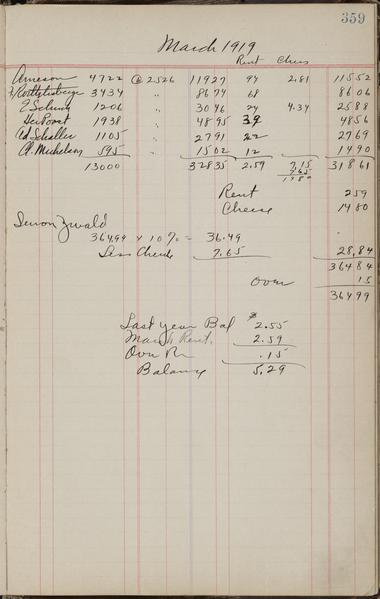 359
March 1919
Rent Chees
Arneson 4722 @ 2526 11927 94 2.81 11552
Rothlisberger 3434 " 8674 68 8606
E Schun 1206 " 3046 24 4.34 2588
DeVoost 1938 " 4895 39 4856
Ad Schaller 1105 " 2791 22 2769
Cl. Michelson 595 " 1502 12 1490
13000 32835 2.59 7.15 31861
7.65
1480
Rent 259
Cheese 1480
Simon Zwald
36499 x 10% = 36.49
Less Cheese 7.65 28,84
36484
Over 15
36499
Last year Bal $ 2.55
March Rent. 2.59
Over Rn .15
Balance 5,29